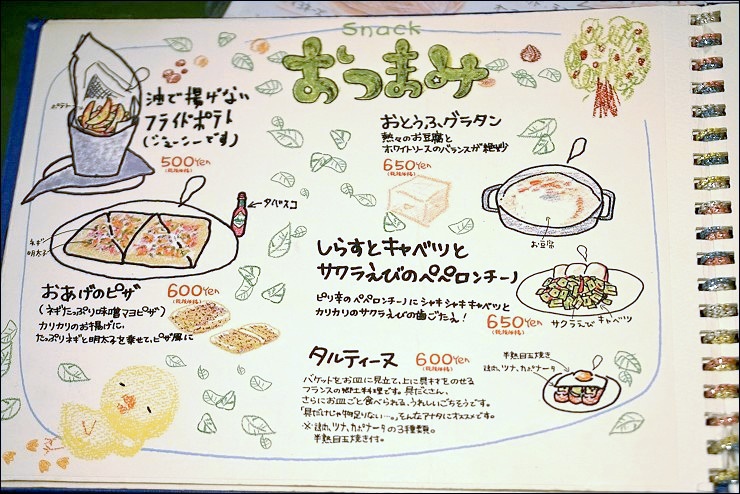 Snack
おつまみ
油で揚げない
フライドポテト
(じぇーじーです)
500Yen
(税抜価格)
ポテト
おとうふグラタン
熱々のお豆腐と
ホワイトソースのバランスが絶妙
650Yen
(税抜価格)
お豆腐
タバスコ
ネギ
明太子
おあげのピザ
600Yen
(税抜価格)
(ネギたっぷり味噌マヨピザ)
カリカリのお揚げに、
たっぷりネギと明太子を乗せて、ピザ風に
しらすとキャベツと
サクラえびのペペロンチーノ
ピリ辛のペペロンチーノにシャキシャキキャベツと
カリカリのサクラえびの歯ごたえ!
650Yen
(税抜価格)
サクラえび
キャベツ
タルティーヌ
600Yen
(税抜価格)
バケットをお皿に見立て、上に具材をのせる
フランスの郷土料理です。具だくさん、
さらにお皿ごと食べられる、うれしいごちそうです。
「具だけじゃ物足りない…。」そんなアナタにオススメです。
ツナ、カルボナータの3種類。
半熟目玉焼き付。
半熟目玉焼き
ツナ、カルボナータ